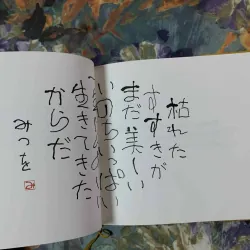 枯れた
すすきが
まだ美しい
いのちいっぱい
生きてきた
からだ
みつを